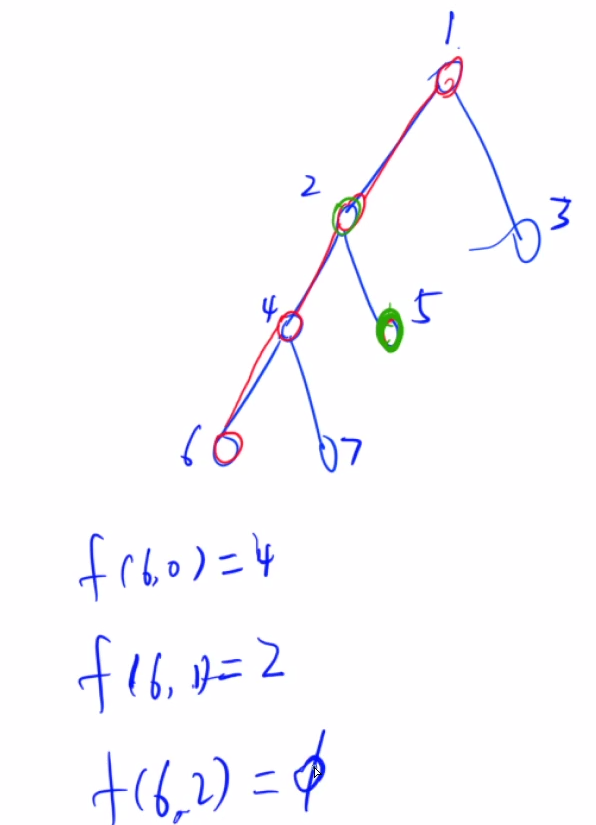 1
2
3
4
5
6
7
f(6,0)=4
f(6,1)=2
f(6,2)=ϕ